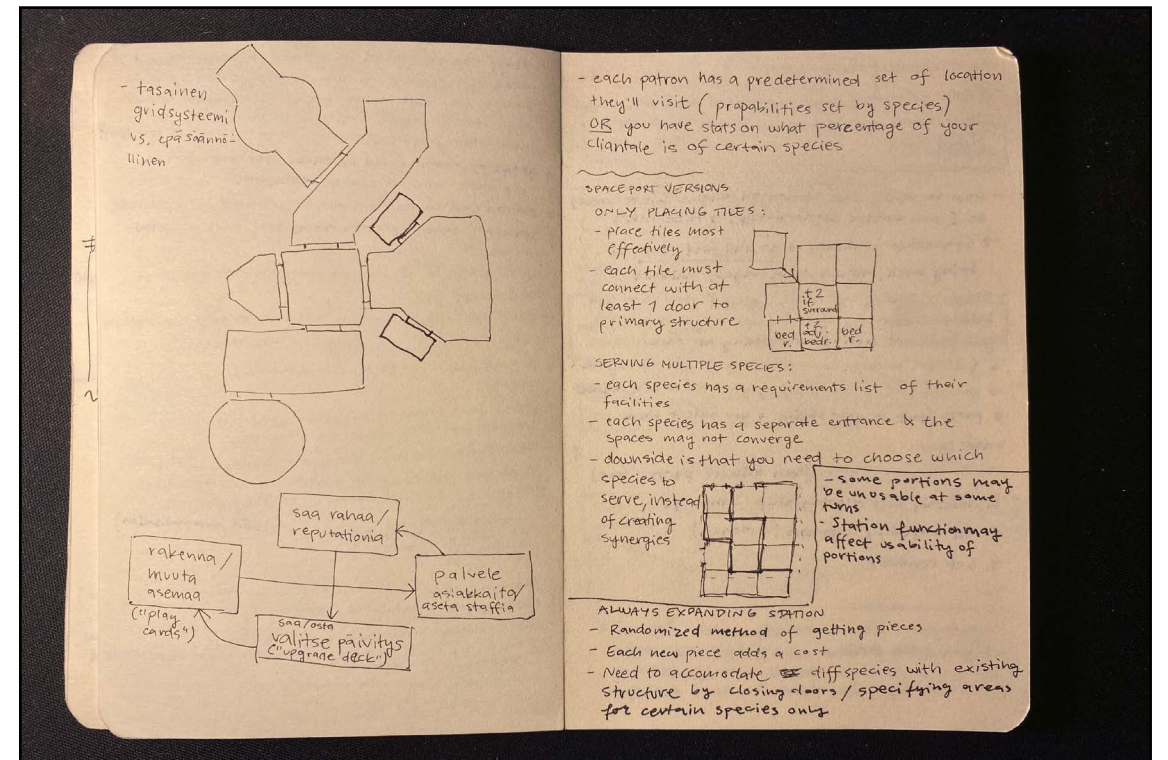 - tasainen
gridsysteemi
vs. epäsäännö-
llinen
saa rahaa/
reputationia
rakenna/
muuta
asemaa
("play
cards")
palvele
asiakkaita/
aseta staffia
saa/osta
valitse päivitys
("upgrade deck")
- each patron has a predetermined set of location
they'll visit (propabilities set by species)
OR you have stats on what percentage of your
cliantale is of certain species
SPACEPORT VERSIONS
ONLY PLACING TILES:
- place tiles most
effectively
- each tile must
connect with at
least 1 door to
primary structure
+2
if
surround
bed
r.
+2
adj.
bedr.
bed
r.
SERVING MULTIPLE SPECIES:
- each species has a requirements list of their
facilities
- each species has a separate entrance & the
spaces may not converge
- downside is that you need to choose which
species to
serve, instead
of creating
synergies
- some portions may
be unusable at some
turns
- Station function may
affect usability of
portions
ALWAYS EXPANDING STATION
- Randomized method of getting pieces
- Each new piece adds a cost
- Need to accomodate diff species with existing
structure by closing doors / specifying areas
for certain species only